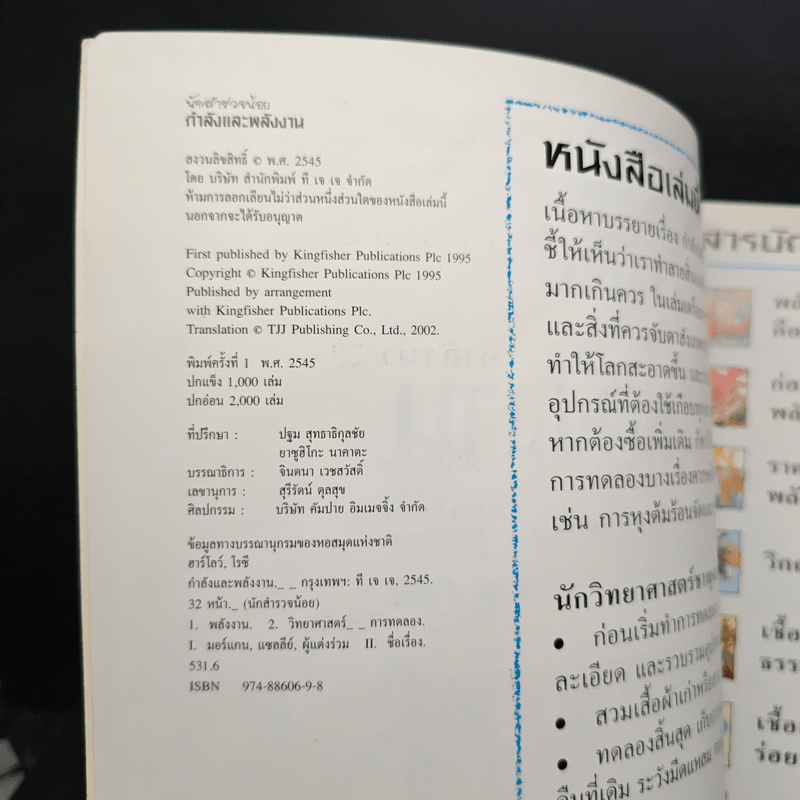 นักสำรวจน้อย
กำลังและพลังงาน
สงวนลิขสิทธิ์ © พ.ศ. 2545
โดย บริษัท สำนักพิมพ์ ที เจ เจ จำกัด
ห้ามการลอกเลียนไม่ว่าส่วนหนึ่งส่วนใดของหนังสือเล่มนี้
นอกจากจะได้รับอนุญาต
First published by Kingfisher Publications Plc 1995
Copyright © Kingfisher Publications Plc 1995
Published by arrangement
with Kingfisher Publications Plc.
Translation © TJJ Publishing Co., Ltd., 2002.
พิมพ์ครั้งที่ 1 พ.ศ. 2545
ปกแข็ง 1,000 เล่ม
ปกอ่อน 2,000 เล่ม
ที่ปรึกษา : ปฐม สุทธาธิกุลชัย
ยาซูฮิโกะ นาคาตะ
บรรณาธิการ : จินตนา เวชสวัสดิ์
เลขานุการ : สุรีรัตน์ ตุลสุข
ศิลปกรรม : บริษัท คัมปาย อิมเมจจิ้ง จำกัด
ข้อมูลทางบรรณานุกรมของหอสมุดแห่งชาติ
ฮาร์โลว์, โรซี
กำลังและพลังงาน._ _ กรุงเทพฯ: ที เจ เจ, 2545.
32 หน้า._ (นักสำรวจน้อย)
1. พลังงาน. 2. วิทยาศาสตร์_ _ การทดลอง.
I. มอร์แกน, แซลลีย์, ผู้แต่งร่วม II. ชื่อเรื่อง.
531.6
ISBN 974-88606-9-8
หนังสือเล่มนี้
เนื้อหาบรรยายเรื่อง
ชี้ให้เห็นว่าเราทำลาย
มากเกินควร ในเล่ม
และสิ่งที่ควรจับตา
ทำให้โลกสะอาดขึ้น
อุปกรณ์ที่ต้องใช้เกือบ
หากต้องซื้อเพิ่มเติม
การทดลองบางเรื่อง
เช่น การหุงต้มร้อน
นักวิทยาศาสตร์
• ก่อนเริ่มทำการทดลอง
ละเอียด และรวบรวม
• สวมเสื้อผ้าเก่าหรือ
• ทดลองสิ้นสุด
คืนที่เดิม ระวังมีดแหลม
สารบัญ